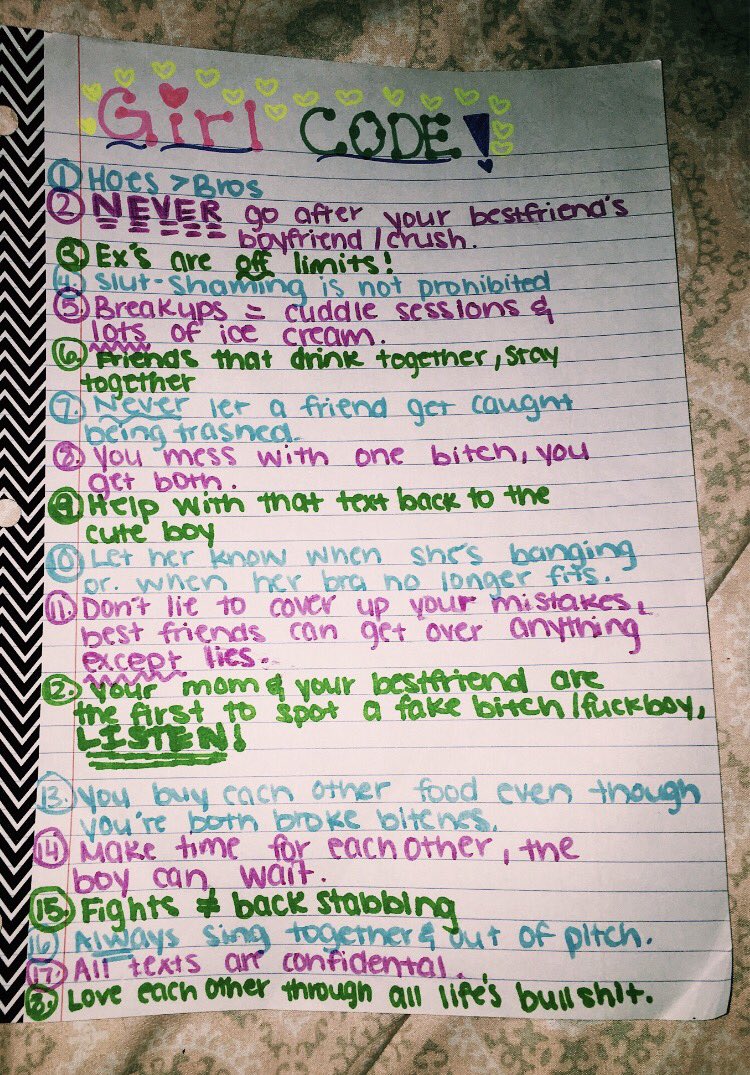 Girl CODE!
1 Hoes > Bros
2 NEVER go after your bestfriend's
boyfriend / crush.
3. Ex's are off limits!
4. Slut-Shaming is not prohibited
5. Breakups = cuddle sessions &
lots of ice cream.
6. Friends that drink together, stay
together
7. Never let a friend get caught
being trashed.
8. You mess with one bitch, you
get both.
9 Help with that text back to the
cute boy
10 Let her know when she's banging
or. when her bra no longer fits.
11. Don't lie to cover up your mistakes,
best friends can get over anything
except lies.
12. Your mom & your bestfriend are
the first to spot a fake bitch / fuckboy,
LISTEN!
13. You buy each other food even though
you're both broke bitches.
14 Make time for each other, the
boy can wait.
15. Fights ≠ back stabbing
16 Always sing together & out of pitch.
17. All texts are confidental.
18. Love each other through all life's bullshit.